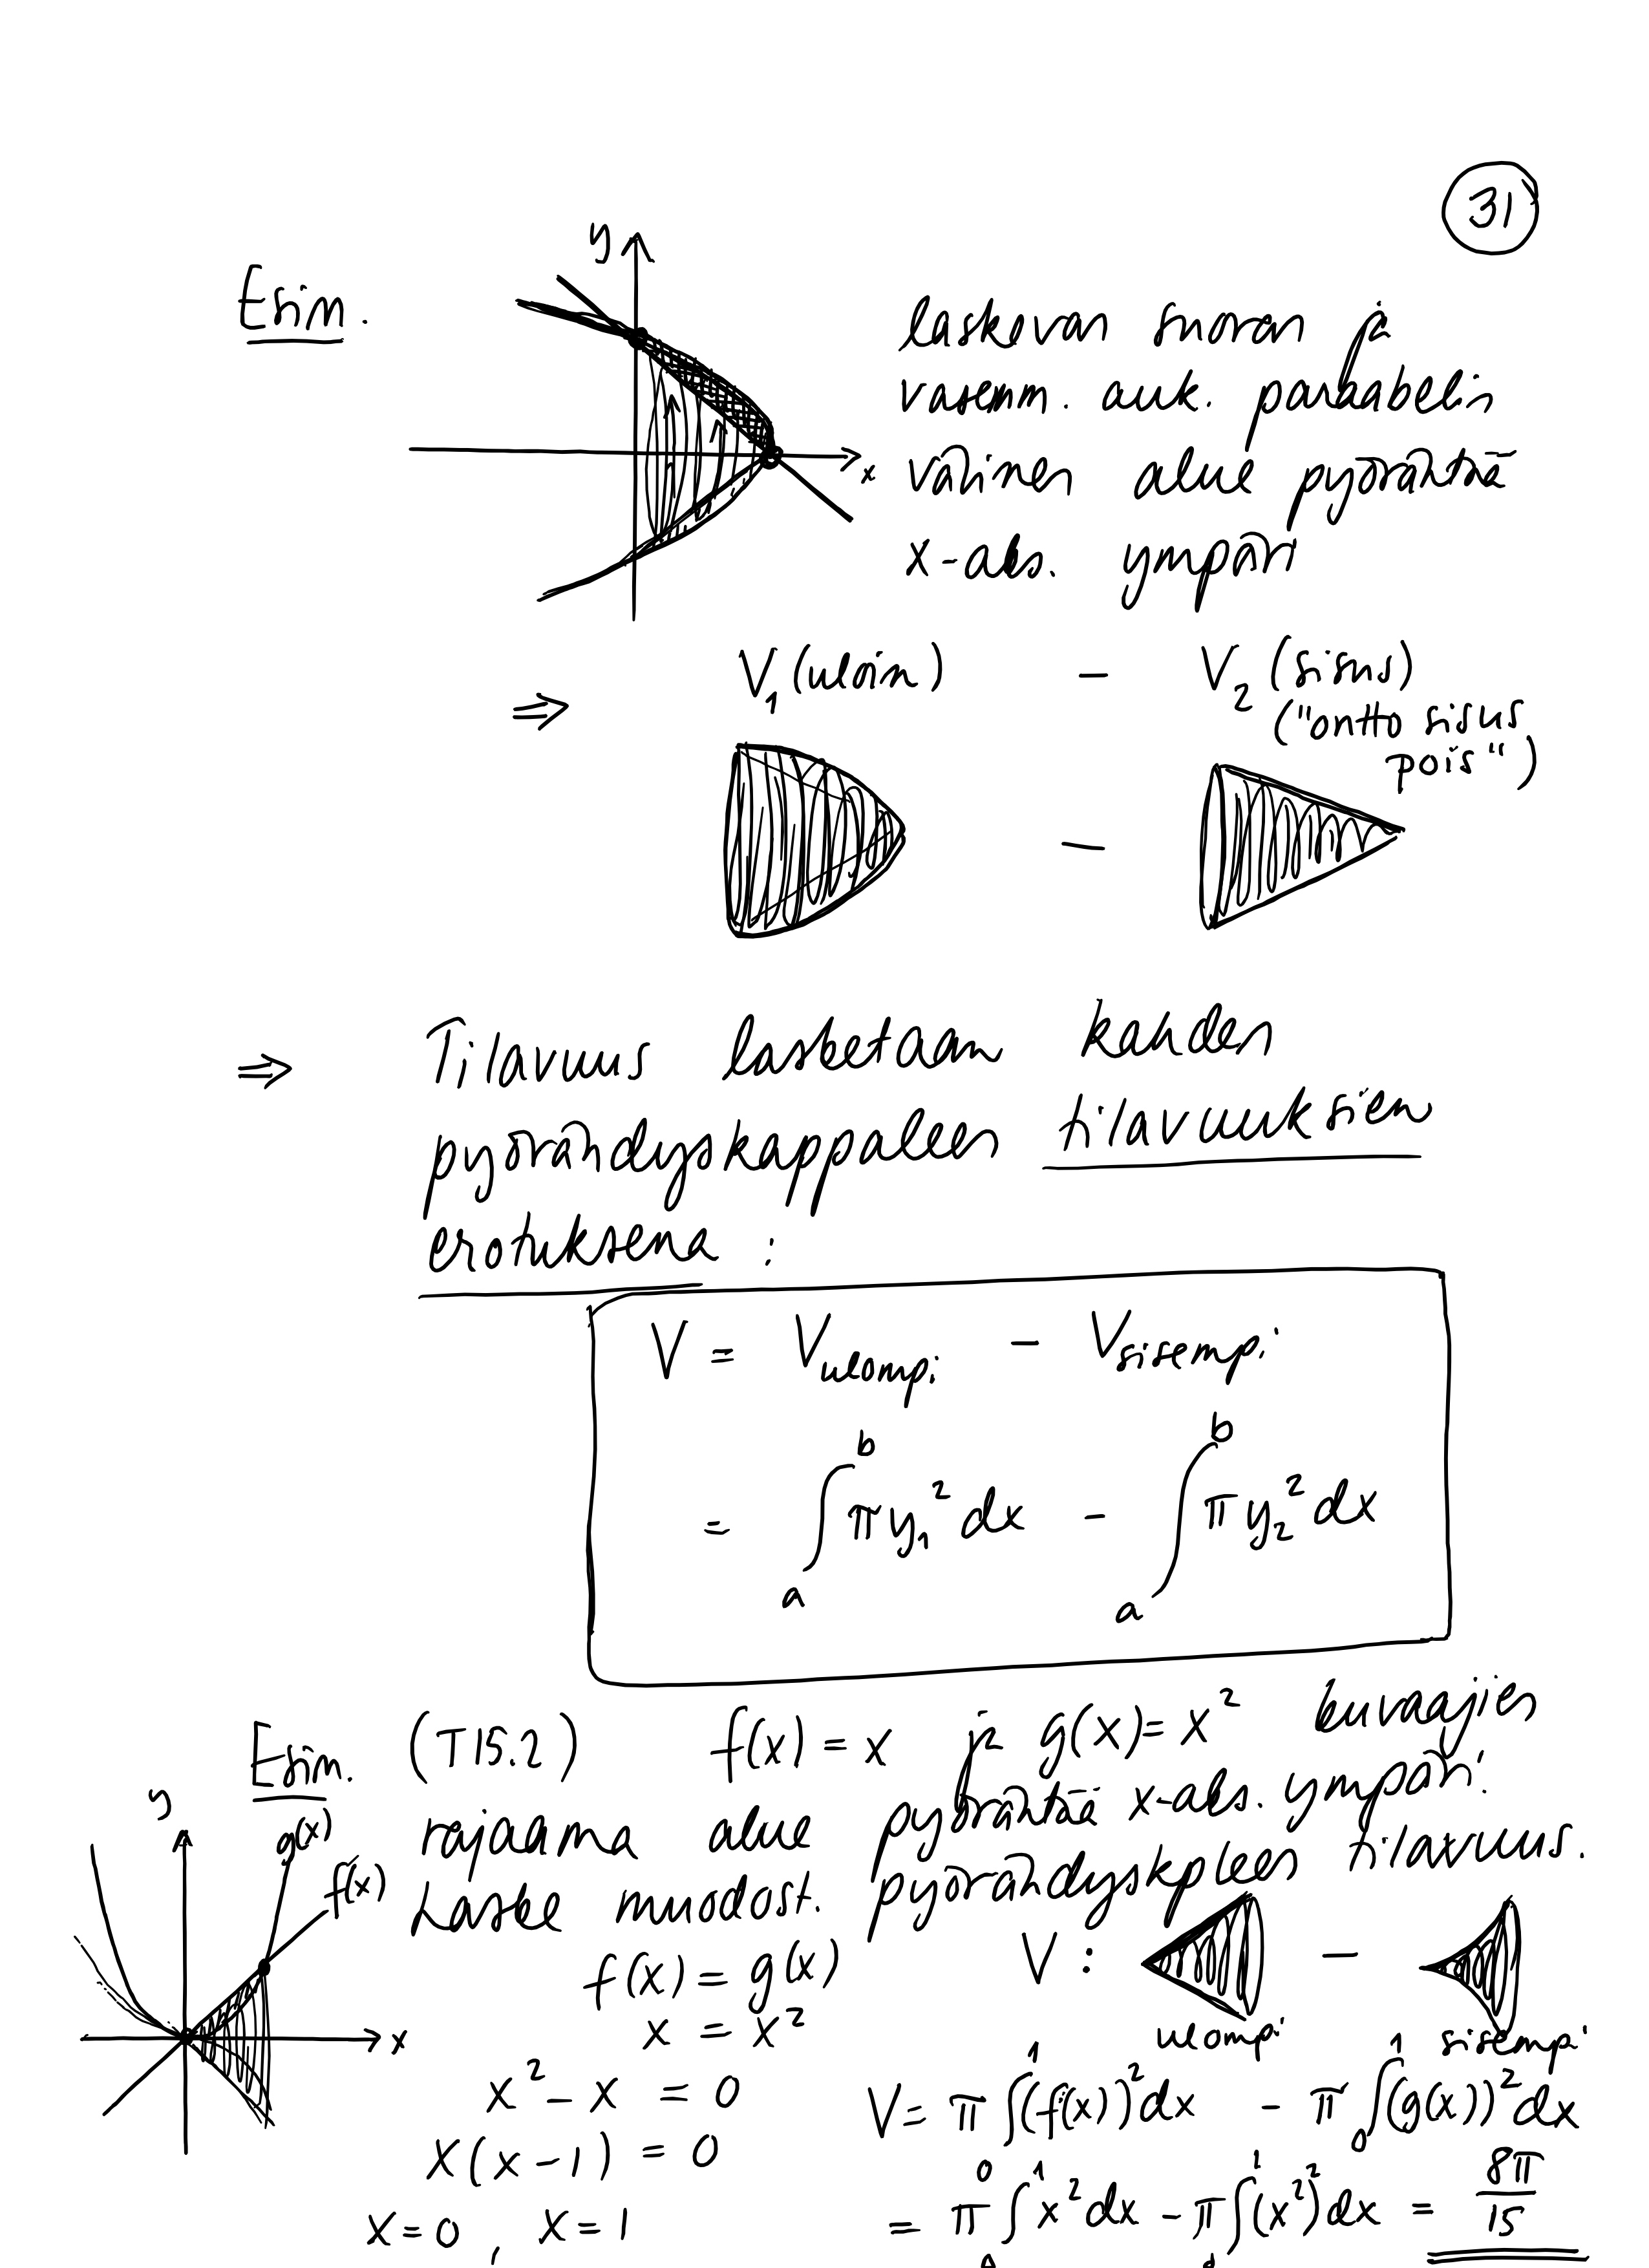 31
Esim.
y
x
laskevan suoran ja
vasemm. auk. paraabelin
välinen alue pyörähtää
x-aks. ympäri
⇒ V₁ (uloin) - V₂ (sisus)
("ontto sisus
pois")
-
⇒ Tilavuus lasketaan kahden
pyörähdyskappaleen tilavuuksien
erotuksena :
V = V_ulompi - V_sisempi
= ∫_a^b π y₁² dx - ∫_a^b π y₂² dx
Esim. (T15.2) f(x) = x ja g(x) = x² kuvaajien
rajaama alue pyörähtää x-aks. ympäri.
Laske muodost. pyörähdyskpleen tilavuus.
y
g(x)
f(x)
x
f(x) = g(x)
x = x²
x² - x = 0
x(x-1) = 0
x=0 , x=1
V : -
ulompi sisempi
V = π ∫_0^1 (f(x))² dx - π ∫_0^1 (g(x))² dx
= π ∫_0^1 x² dx - π ∫_0^1 (x²)² dx = 8π/15